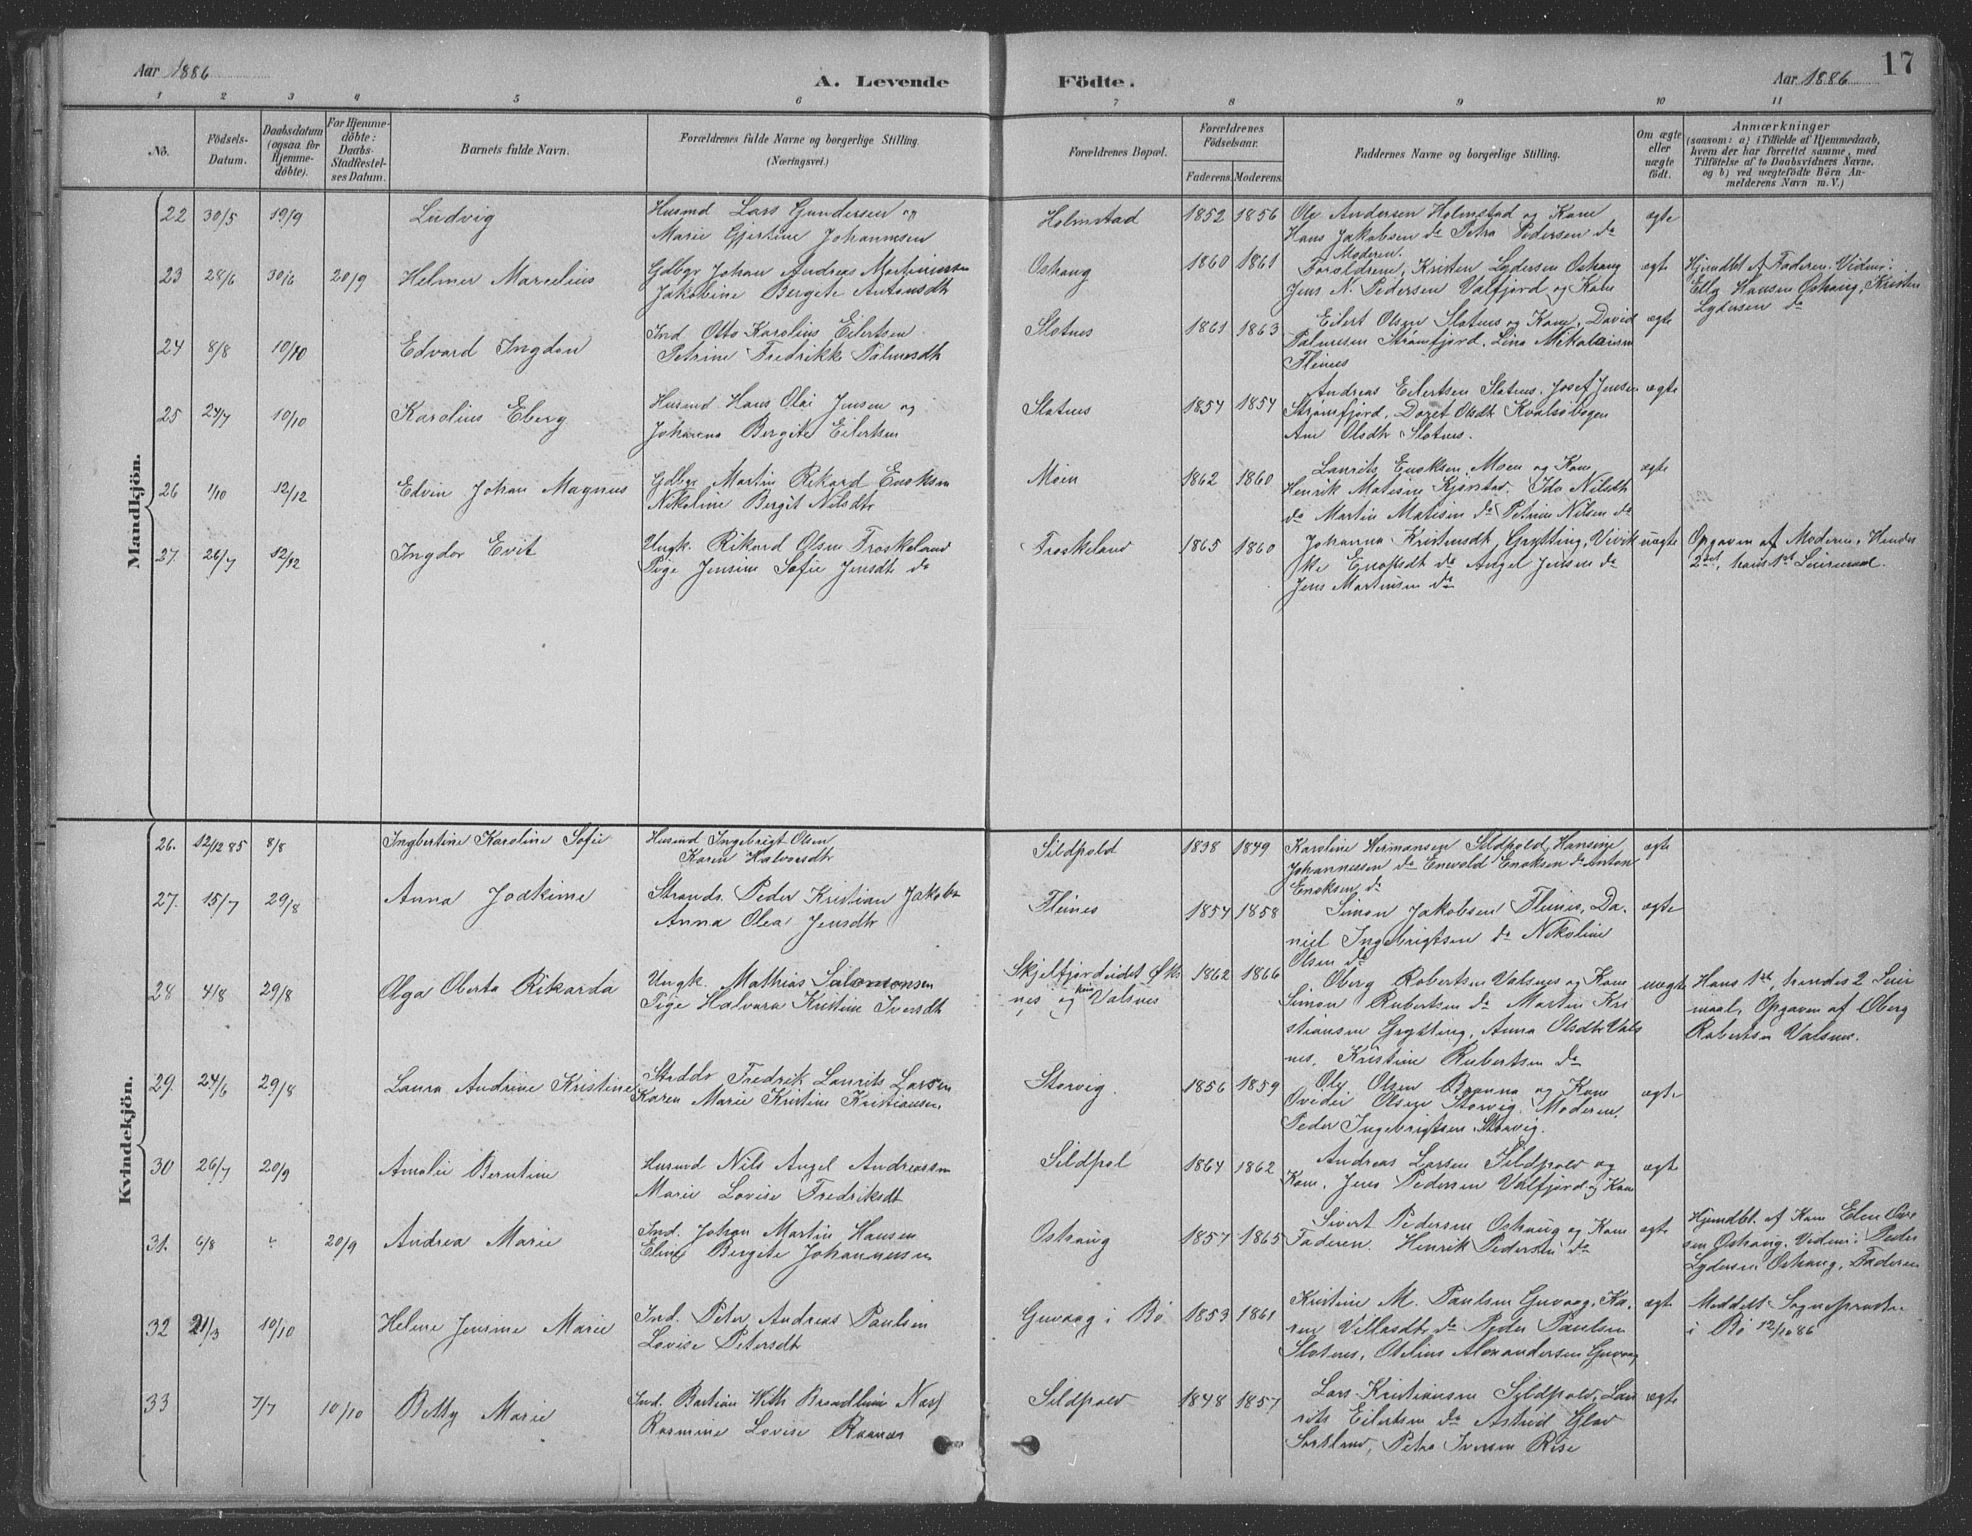 Aar 1886 A. Levende Födte. Aar 1886 17
1 2 3 4 5 6 7 8 9 10 11
No. Födsels-Datum. Daabsdatum (ogsaa for Hjemme-döbte). For Hjemme-döbte: Daabs-Stadfestel-ses Datum. Barnets fulde Navn. Forældrenes fulde Navne og borgerlige Stilling. (Næringsvei.) Forældrenes Bopæl. Forældrenes Födselsaar. Faderens. Moderens. Faddernes Navne og borgerlige Stilling. Om ægte eller uægte födt. Anmærkninger (saasom: a) i Tilfælde af Hjemmedaab, hvem der har forrettet samme, med Tilföielse af to Daabsvidners Navne, og b) ved uægtefödte Börn An-melderens Navn m. V.)
Mandkjön.
22 30/5 19/9 Ludvig Husmd Lars Gundersen og Holmstad 1852 1856 Ole Andersen Holmstad og Kone ægte
Marie Gjertine Johannesen Hans Jakobsen do Petra Pedersen do
23 28/6 30/6 20/9 Helmer Marselius Gdbgr Johan Andreas Martinussen Oshaug 1860 1861 Moderen. Forældrene, Kristen Lydersen Oshaug ægte Hjemdbt af Faderen. Vidner:
Jakobine Bergete Antonsdtr Jens N. Pedersen Valfjord og Kone Elly Hansen Oshaug, Kristen
Lydersen do
24 8/8 10/10 Edvard Ingdan Ind Otto Karolius Eilertsen Slotnes 1861 1863 Eilert Olsen Slotnes og Kone, David ægte
Petrine Fredrikke Palmesdtr Palmesen Strømfjord, Lina Mikalaisen
Fleines
25 24/7 10/10 Karolius Eberg Husmd Hans Olai Jensen og Slotnes 1854 1854 Andreas Eilertsen Slotnes, Josef Jensen ægte
Johanna Bergite Eilertsen Strømfjord, Doret Olsdtr Kvalsøbogen
Ane Olsdtr Slotnes.
26 1/10 12/12 Edvin Johan Magnus Gdbgr Martin Rikard Enoksen Moen 1862 1860 Laurits Enoksen Moen og Kone ægte
Nikoline Bergit Nilsdtr Henrik Matisen Kjørstad. Ida Nilsdtr
do Martin Matisen do Petrine Nilsen do
27. 26/7 12/12 Ingdor Evit Ungk. Rikard Olsen Froskeland Froskeland 1865 1860 Johanna Kristensdtr Grytting, Vivik uægte Opgaven af Moderen. Hendes
Pige Jensine Sofie Jensdtr do ke Enoksdtr do Angel Jensen do 2det, hans 1st Leiermaal.
Jens Martinsen do
Kvindekjön.
26. 12/12 85 8/8 Ingbertine Karoline Sofie Husmd Ingebrigt Olsen Sildpold 1838 1849 Karoline Hermansen Sildpold, Hansine ægte
Karen Halvorsdtr Johannessen do Enevold Enoksen do Anton
Enoksen do
27. 15/7 29/8 Anna Jodkime Strands. Peder Kristian Jakobs Fleines 1854 1858 Simon Jakobsen Fleines, Da- ægte
Anna Olea Jensdtr niel Ingebrigtsen do Nikoline
Olsen do
28 4/8 29/8 Olga Oberta Rikarda Ungk. Mathias Salomonsen Skjelfjordeidet Øks 1862 1866 Oberg Robertsen Valsnes og Kone uægte Hans 1st, hendes 2 Leier
Pige Halvara Kristine Iversdtr nes, og hun Valsnes Simon Rubertsen do Martin Kri maal, Opgaven af Oberg
stiansen Grytting, Anna Olsdtr Vals Robertsen Valsnes.
nes, Kristine Rubertsen do
29. 24/6 29/8 Laura Andrine Kristine Fredrik Laurits Larsen Storvig 1856 1859 Ole Olsen Brunna og Kone ægte
Karen Marie Kristine Kristiansen Ovedie Olsen Storvig. Moderen.
Peder Ingebrigtsen Storvig.
30 26/7 20/9 Amalie Berntine Husmd Nils Angel Andreassen Sildpol 1864 1862 Andreas Larsen Sildpold og ægte
Marie Lovise Fredriksdt Kone, Jens Pedersen Valfjord og Kone
31. 6/8 " 20/9 Andrea Marie Ind. Johan Martin Hansen Oshaug 1857 1865 Sivert Pedersen Oshaug og Kone ægte Hjemdbt. af Kone Elen Ove
Eline Bergete Johannesen Faderen. Henrik Pedersen do sen Oshaug. Vidner: Peder
Lydersen Oshaug, Faderen
32 21/3 10/10 Helene Jensine Marie Ind. Peter Andreas Paulsen Guvaag i Bø 1853 1861 Kristine M. Paulsen Guvaag, Ka- ægte Meddelt Sognepresten
Lovise Petersdt ren Villasdtr do Peder Paulsen i Bø 12/10 86
Slotnes, Otelius Alexandersen Guvaag
33 7/7 10/10 Betty Marie Ind. Bastian With Brodtlein Sildpold 1848 1857 Lars Kristiansen Sildpold, Lau ægte
Rasmine Lovise Raanes rits Eilertsen do Astrid Glad
Sortland, Petra Iversen Rise